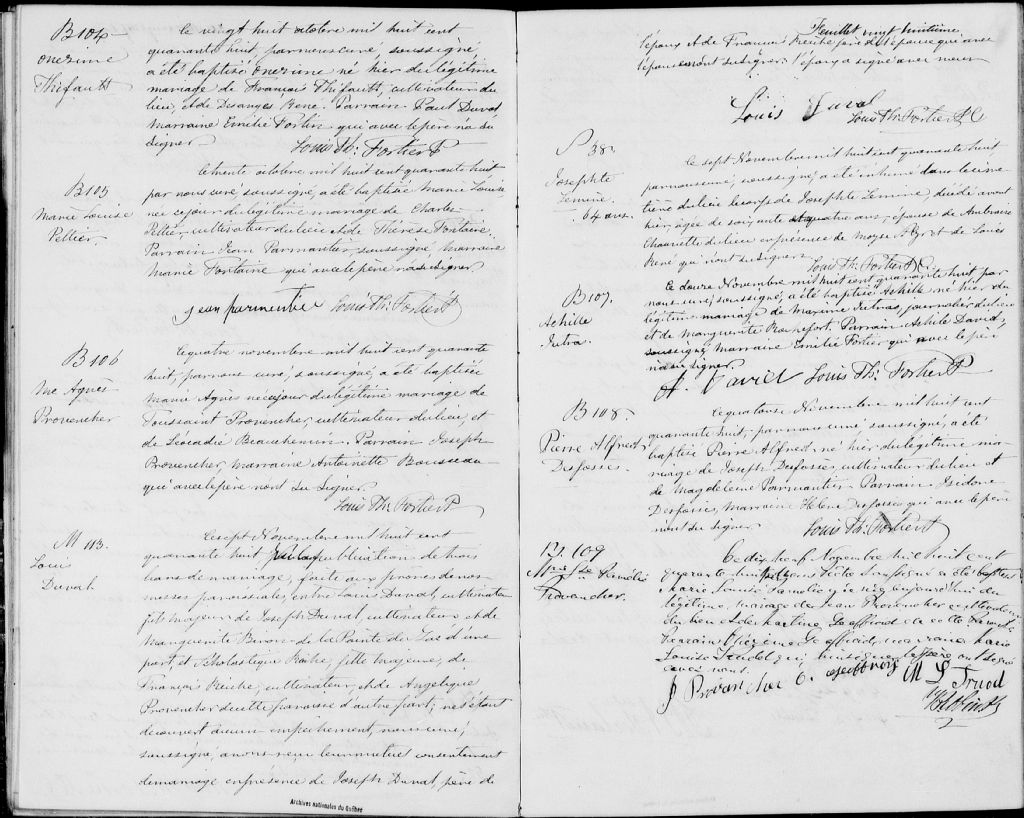 B 104
onezime
Thifault
Le vingt huit octobre mil huit cent
quarante huit par nous curé soussigné
a été baptisé onezime né hier du légitime
mariage de François Thifault, cultivateur du
lieu, et de Desanges René. Parrain Paul Duval
Marraine Emilie Fortin qui avec le père n'a su
signer.
Louis Th: Fortier P
B 105
Marie Louise
Peltier
Le trente octobre mil huit cent quarante huit
par nous curé soussigné, a été baptisée Marie Louise,
née ce jour du légitime mariage de Charles
Peltier, cultivateur du lieu et de Thérèse Fontaine.
Parrain Jean Parmantier, soussigné, Marraine
Marie Fontaine qui avec le père n'a su signer
jean parmentie Louis Th: Fortier P
B 106
Me Agnès
Provencher
Le quatre novembre mil huit cent quarante
huit, par nous curé, soussigné, a été baptisée
Marie Agnès née ce jour du légitime mariage de
Toussaint Provencher, cultivateur du lieu, et
de Léocadie Beauchemin. Parrain Joseph
Provencher, marraine Antoinette Rousseau
qui avec le père n'ont su signer.
Louis Th: Fortier P
M 113.
Louis
Duval
Le sept Novembre mil huit cent
quarante huit publication de trois
bans de mariage, faite aux prônes de nos
messes paroissiales entre Louis Duval, cultivateur
fils majeur de Joseph Duval, cultivateur et de
Marguerite de la Pointe du Lac d'une
part et Scholastique Reiche, fille majeure, de
François Reiche, cultivateur, et de Angelique
Provencher de cette paroisse d'autre part; ne s'étant
découvert aucun empêchement, nous curé,
soussigné, avons reçu leur mutuel consentement
de mariage en présence de Joseph Duval, père de
Archives nationales du Québec
Feuillet vingt huitième
l'époux et de François Reiche père de l'épouse qui avec
l'épouse n'ont su signer. L'époux a signé avec nous
Louis Duval
Louis Th: Fortier P
S 38.
Josephte
Lemire
64 ans.
Le sept Novembre mil huit cent quarante huit
par nous curé, soussigné, a été inhumé dans le cime-
tière du lieu le corps de Josephte Lemire, décédé avant
hier, agée de soixante et quatre ans, épouse de Ambroise
Chaurette du lieu en présence de Moyse et de Louis
René qui n'ont su signer.
Louis Th: Fortier P
B 107.
Achille
Jutra.
Le douze Novembre mil huit cent quarante huit par
nous curé, soussigné, a été baptisé Achille né hier du
légitime mariage de Maxime Jutras, journalier du lieu
et de Marguerite Rochefort Parrain Achile David,
soussigné, Marraine Emilie Fortier qui avec le père
n'a su signer.
A. David Louis Th: Fortier P
B 108.
Pierre Alfred
Desfossés.
Le quatorze Novembre mil huit cent
quarante huit, par nous curé soussigné, a été
baptisé Pierre Alfred né hier du légitime ma-
riage de Joseph Desfossés, cultivateur du lieu et
de Magdeleine Parmantier. Parrain Isidore
Desfossés, Marraine Hélène Desfossés qui avec le père
n'ont su signer.
Louis Th: Fortier P
B. 109
Mrie Lse Pamélie
Provencher.
Le dix neuf Novembre mil huit cent
quarante huit soussigné a été baptisée
Marie Louise Pamélie née aujourd'hui du
légitime mariage de Jean Provencher cultivateur
du lieu et de
Parrain marraine Marie
Louise Trudel qui le père ont signé
avec nous
J Provancher M L Trudel